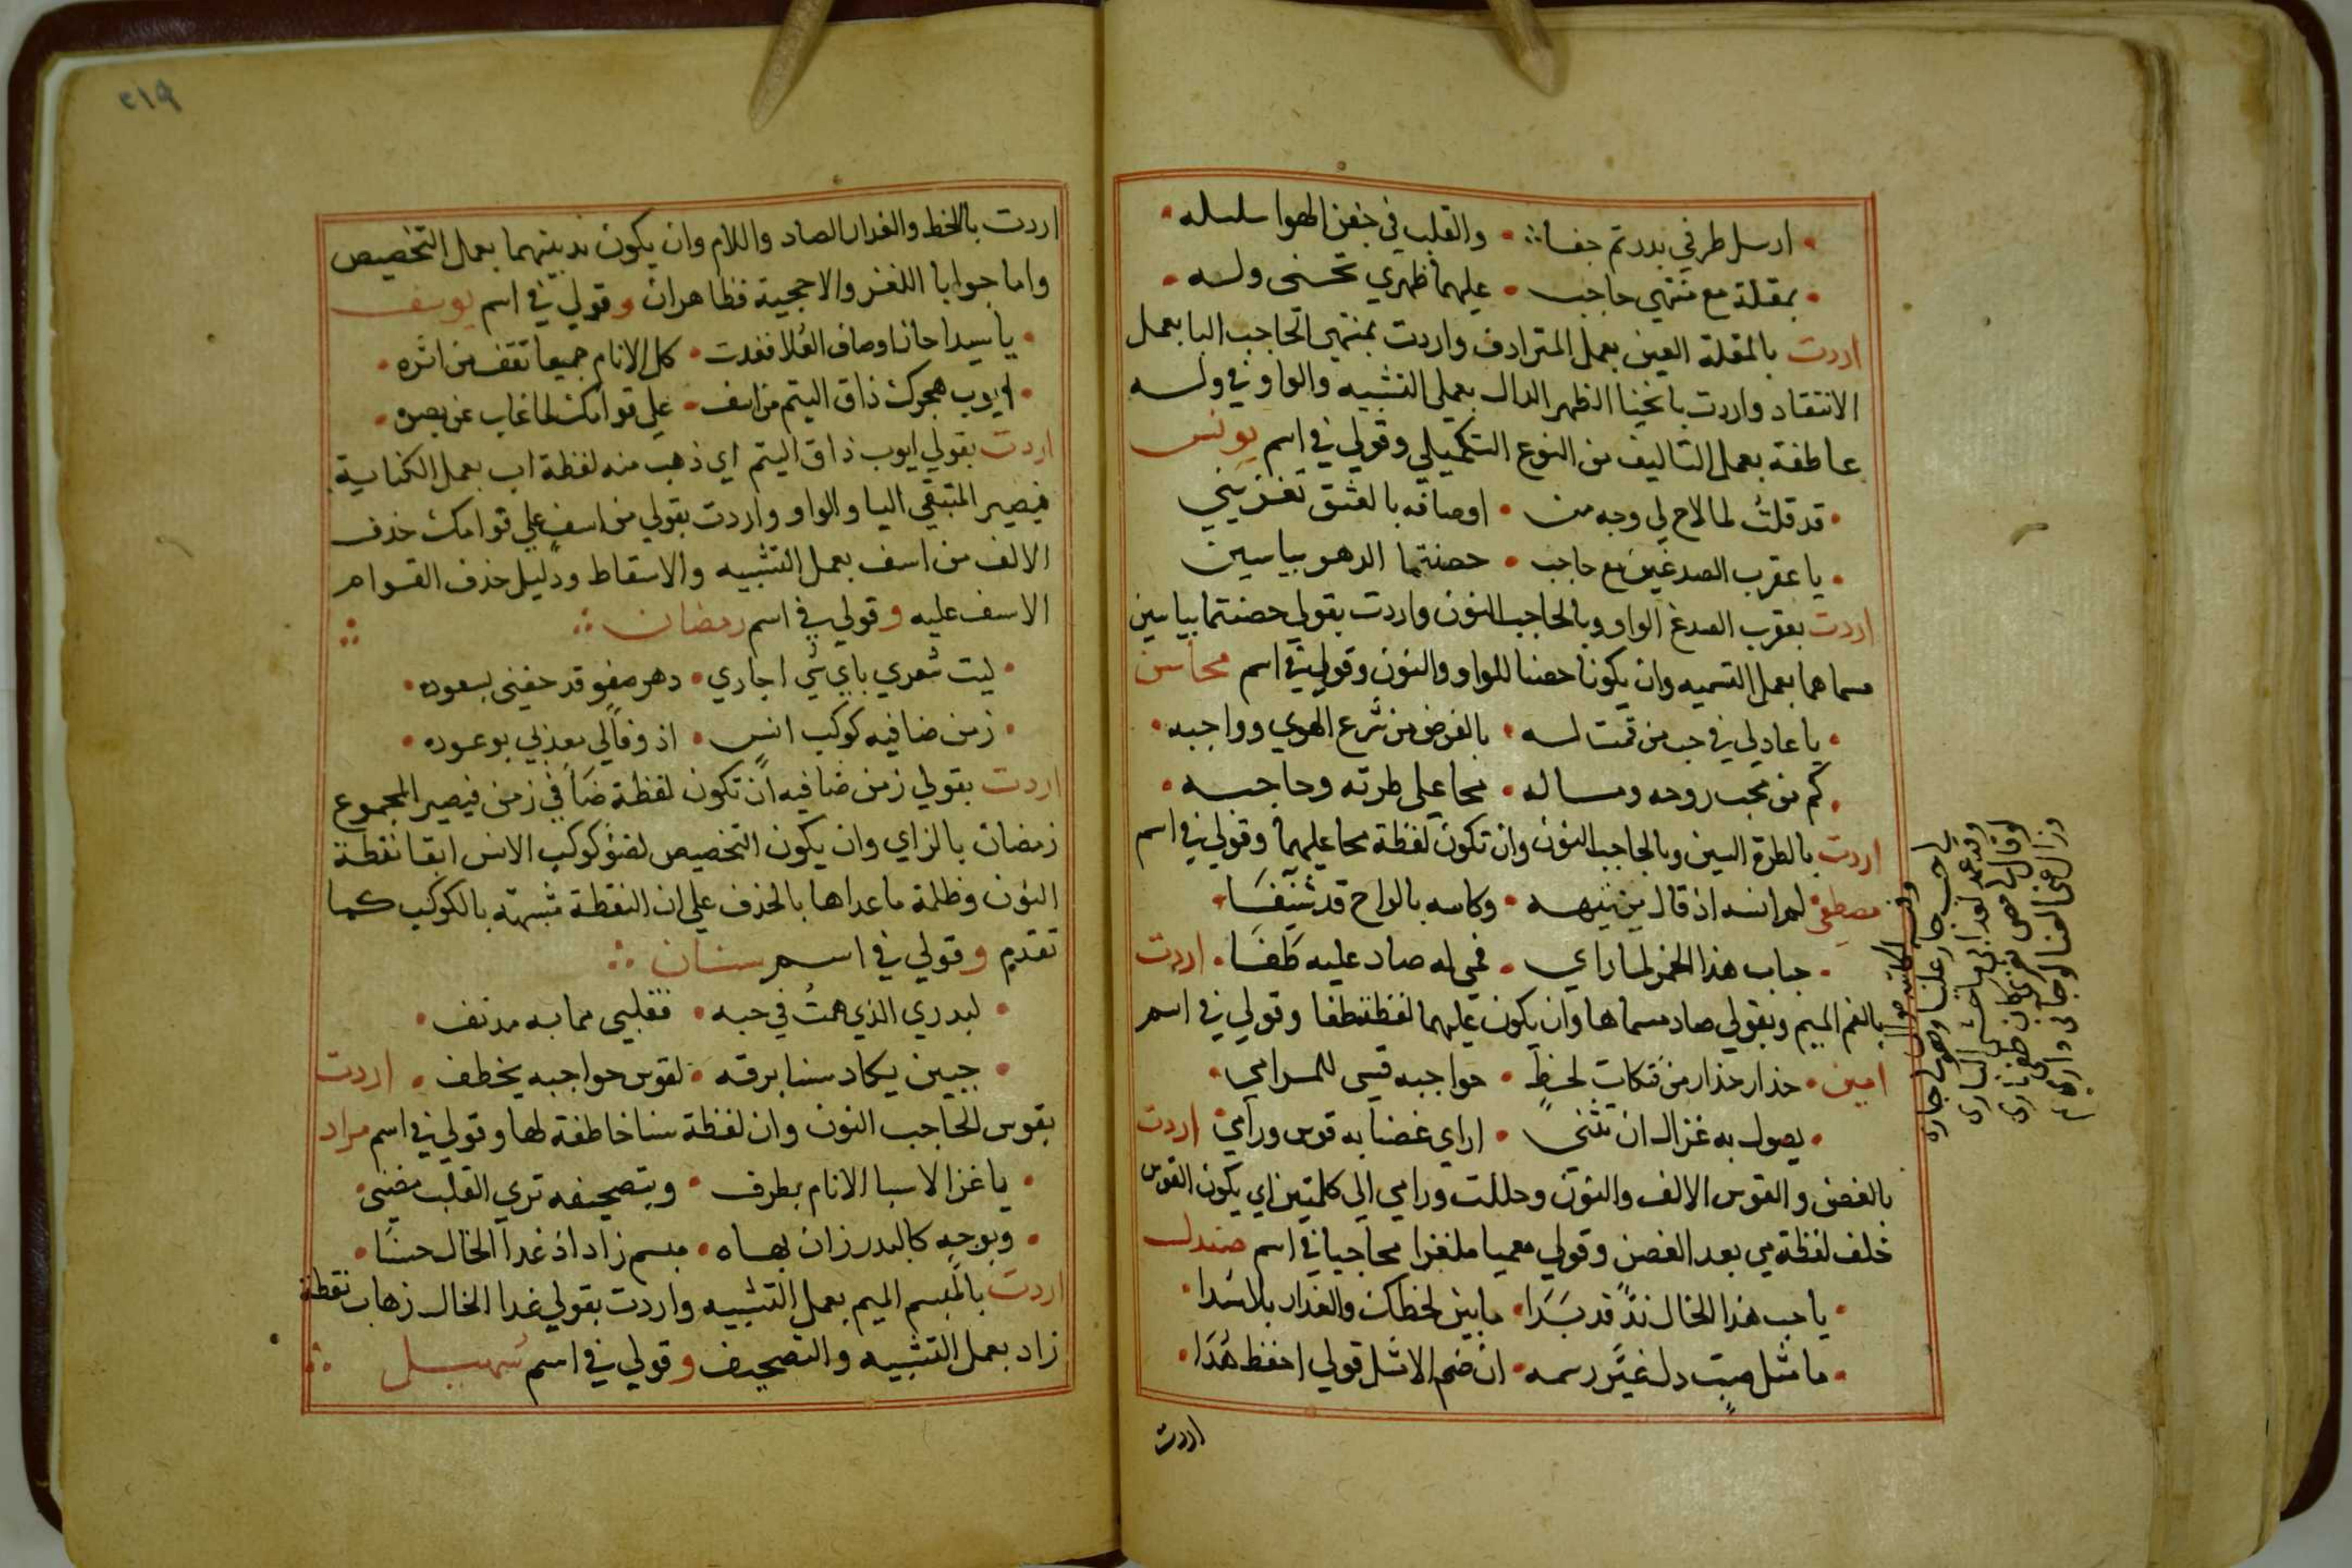 ارسل طرفي بدر تم جفا • والقلب في جفن الهوا سلسله •
• بمقلة مع منتهي حاجب • عليهما ظهري تحنى وله •
اردت بالمقلة العين بعمل المترادف واردت بمنتهى الحاجب البا بعمل
الانتقاد واردت بانحنا الظهر الدال بعمل التشبيه والواو في وله
عاطفة بعمل التاليف من النوع التكميلي وقولي في اسم يونس
• قد قلت لما لاح لي وجه من • اوصافه بالعشق تغزيني
• يا عقرب الصدغين مع حاجب • حصنتما الدهو بياسين
اردت بعقرب الصدغ الواو وبالحاجب النون واردت بقولي حصنتما بياسين
مسماهما بعمل التسميه وان يكونا حصنا للواو والنون وقولي في اسم محاسن
• يا عاذلي في حب من قمت له • بالفرض من شرع الهوي وواجبه •
• كم من محب روحه وماله • محا على طرته وحاجبه •
اردت بالطرة السين وبالحاجب النون وان تكون لفظة محا عليهما وقولي في اسم
مصطفى لم انسه اذ قال من تيهه • وكاسه بالراح قد شنفا •
• حباب هذا الخمر لما راي • فمي له صاد عليه طفا • اردت
بالفم الميم وبقولي صاد مسماها وان يكون عليهما لفظة طفا وقولي في اسم
امين • حذار حذار من فتكات لحظ • حواجبه قسي للمرامي •
• يصول به غزال ان تثنى • اراي غصنا به قوس ورامي اردت
بالغصن والقوس الالف والنون وحللت ورامي الى كلمتين اي يكون القوس
خلف لفظة مي بعد الغصن وقولي معميا ملغزا محاجيا في اسم صندل
• يا حب هذا الخال ند قد بدا • ما بين لحظك والعذار بلا سدا •
• ما مثل صبت دل غير رسمه • ان ضم الامثل قولي احفظ هدا •
اردت
وقد
يا حب جار علينا
اردت باللخط والعذار الصاد واللام وان يكون ند بينهما بعمل التخصيص
واما جوابا اللغز والاحجية فظاهران وقولي في اسم يوسف
• يا سيدا حاز اوصاف العلا فغدت • كل الانام جميعا تقف من اثره •
• ايوب هجرك ذاق اليتم من اسف • على قوامك لما غاب عن بصره •
اردت بقولي ايوب ذاق اليتم اي ذهب منه لفظة اب بعمل الكناية
فيصير المتبقي اليا والواو واردت بقولي من اسف علي قوامك حذف
الالف من اسف بعمل التشبيه والاسقاط ودليل حذف القوام
الاسف عليه وقولي في اسم رمضان
• ليت شعري باي شي اجاري • دهر صفو قد حفني بسعوده •
• زمن ضا فيه كوكب انس • اذ وفا لي بعذلي بوعوده •
اردت بقولي زمن ضا فيه ان تكون لفظة ضا في زمن فيصير المجموع
زمضان بالزاي وان يكون التخصيص لضؤ كوكب الانس ابقا نقطة
النون وظلمة ما عداها بالحذف على ان النقطة مشبهة بالكوكب كما
تقدم وقولي في اسم سنان
• لبدري الذي همت في حبه • فقلبي مما به مدنف •
• جبين يكاد سنا برقه • لقوس حواجبه يخطف • اردت
بقوس الحاجب النون وان لفظة سنا خاطفة لها وقولي في اسم مراد
• يا غزالا سبا الانام بطرف • وبتصحيفه تري القلب مضنى •
• وبوجه كالبدر زان بهاه • مبسم زاد اذ غدا الخال حسنا •
اردت بالمبسم الميم بعمل التشبيه واردت بقولي غدا الخال ذهاب نقطة
زاد بعمل التشبيه والتصحيف وقولي في اسم سهيل